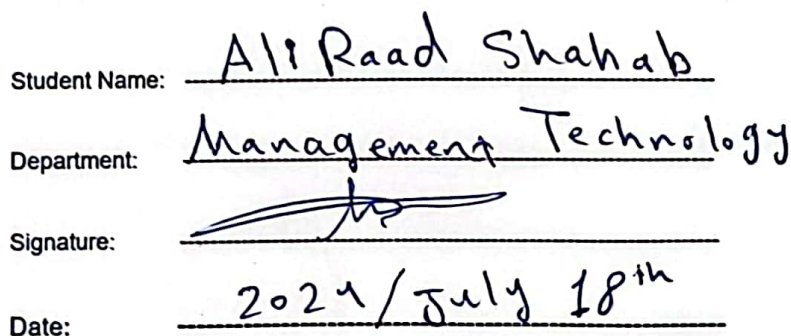 Student Name: Ali Raad Shahab
Department: Management Technology
Signature:
Date: 2024 / July 18th